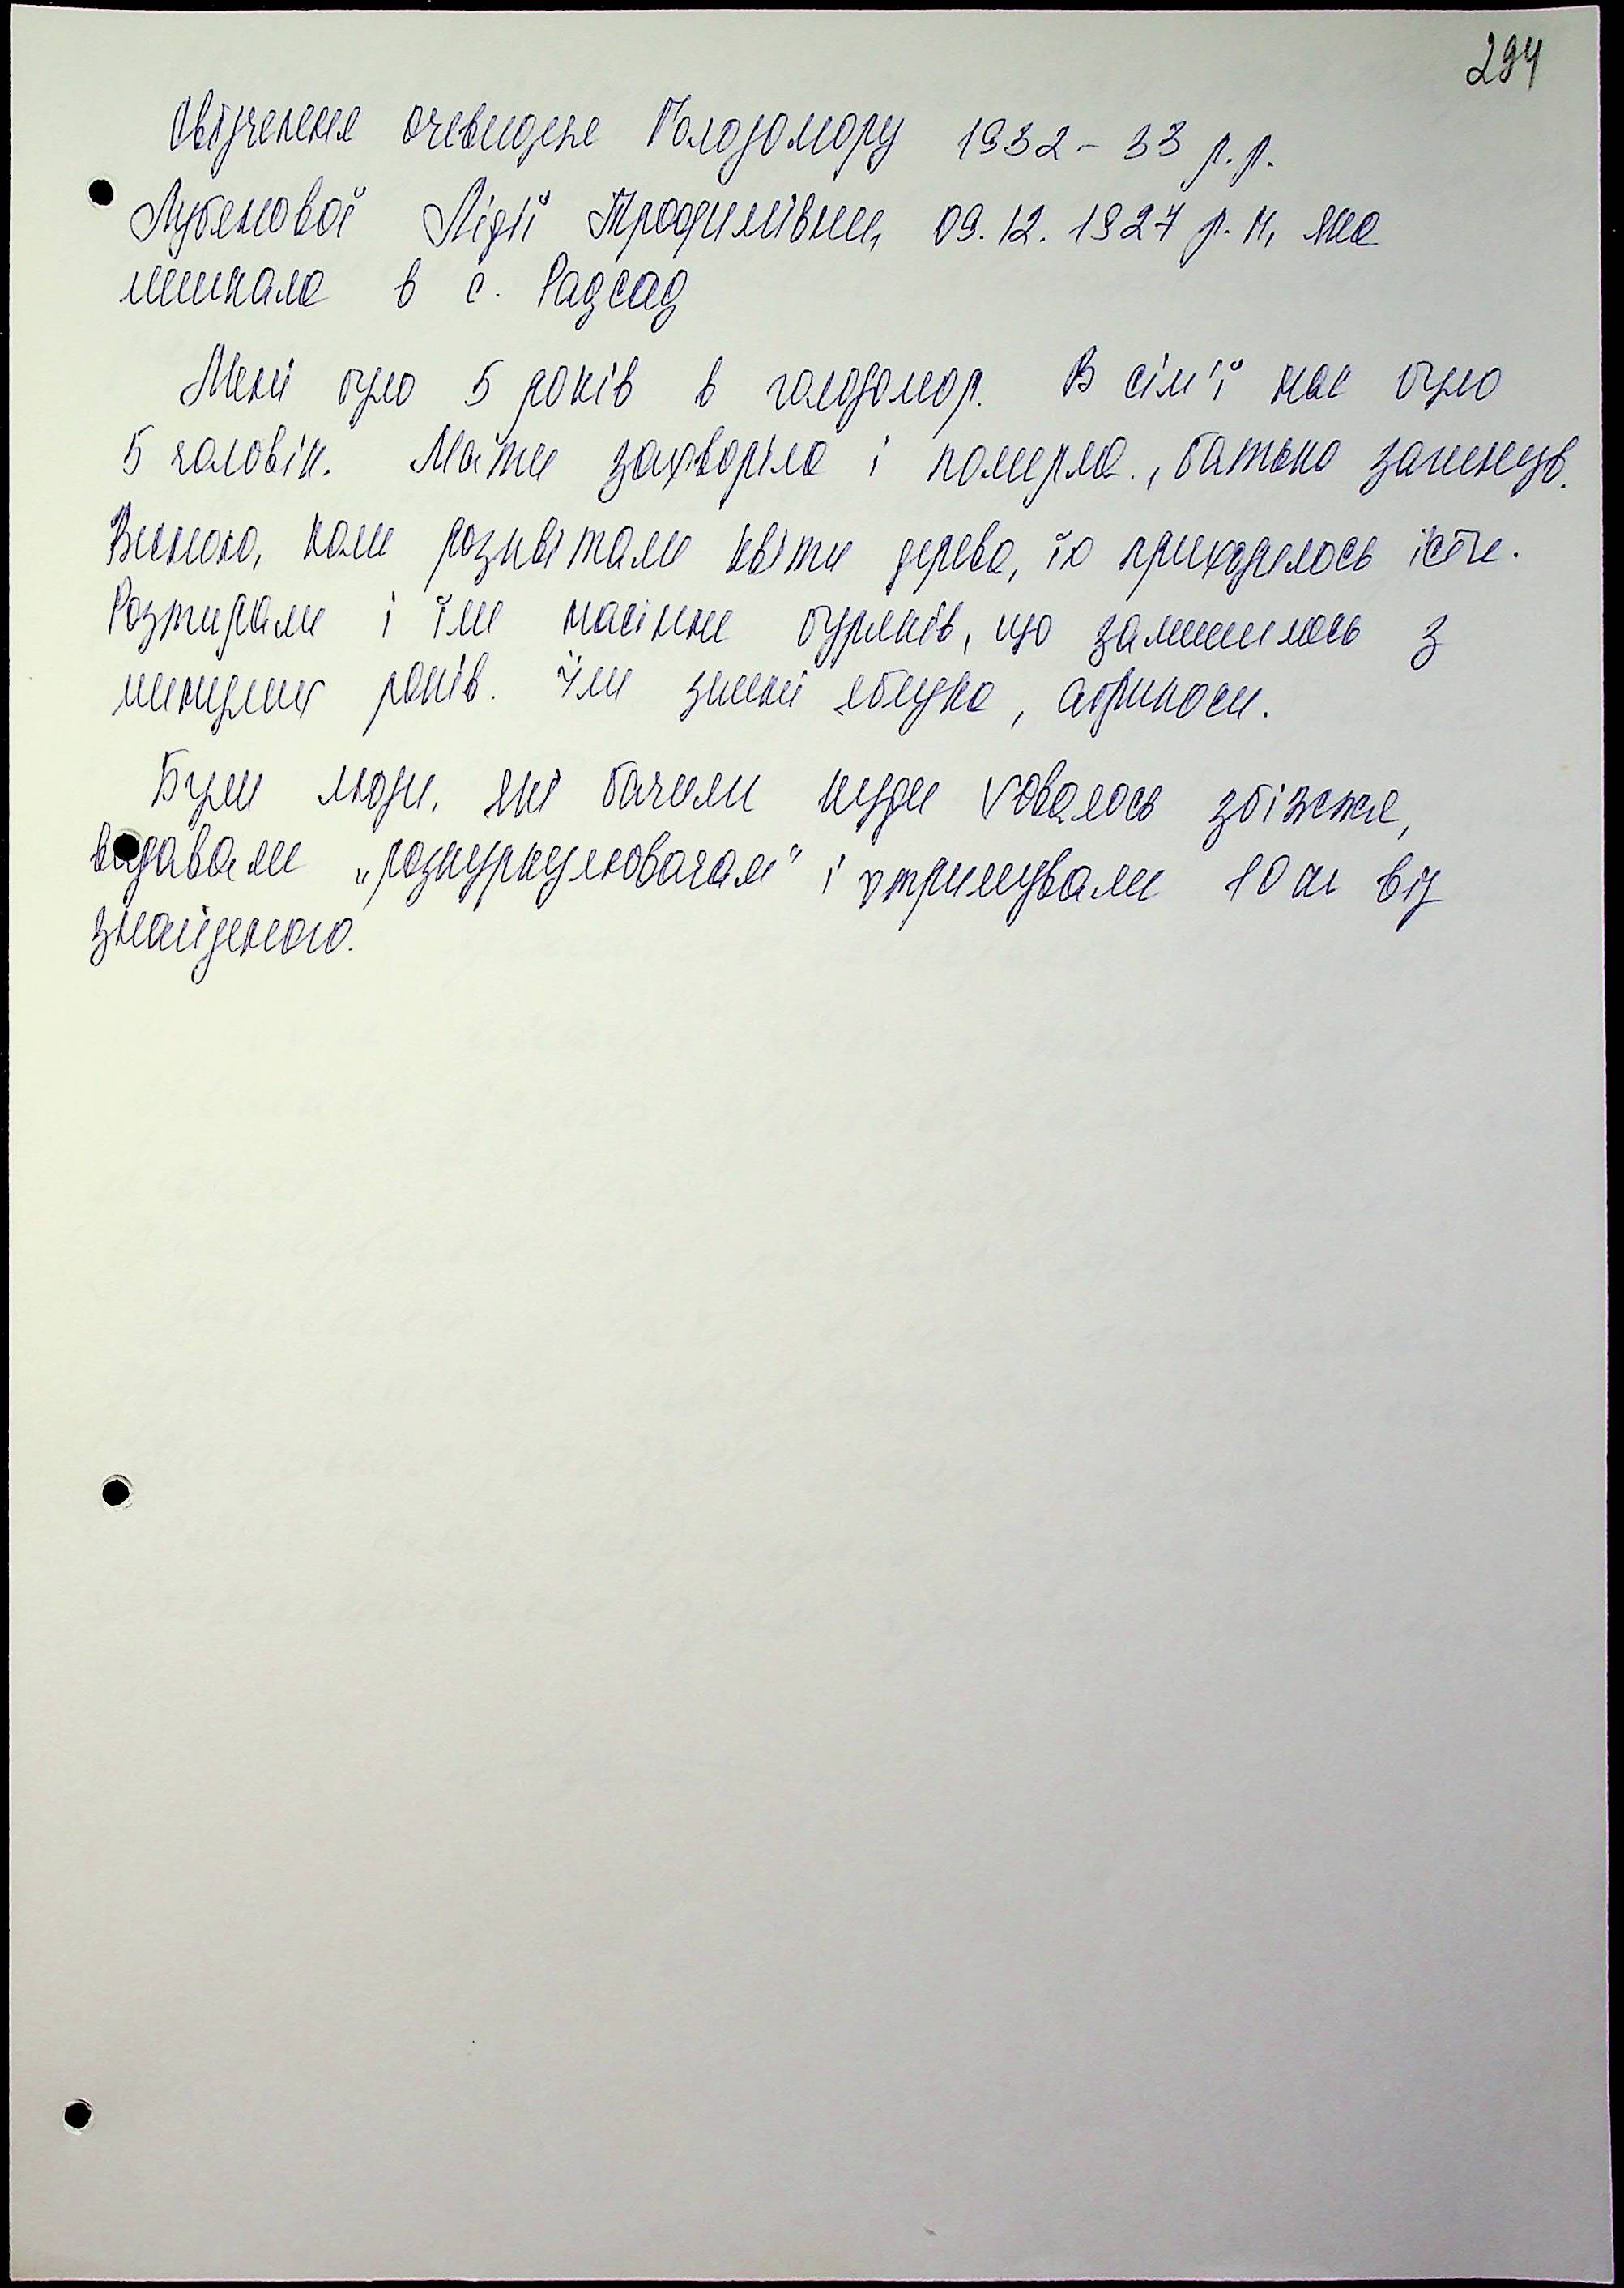 294
Свідчення очевидця Голодомору 1932 - 33 р.р.
Лубянової Лідії Трофимівни, 09.12.1927 р.н, яка
мешкала в с. Радсад
Мені було 5 років в голодомор. В сім'ї нас було
5 чоловік. Мати захворіла і померла., батько загинув.
Весною, коли розквітали квіти дерева, їх приходилось їсти.
Розтирали і їли насіння буряків, що залишилось з
минулих років. Їли зимні яблука, абрикоси.
Були люди, які бачили куди ховалось збіжжя,
видавали „розкуркулювачам" і отримували 10 кг від
знайденого.